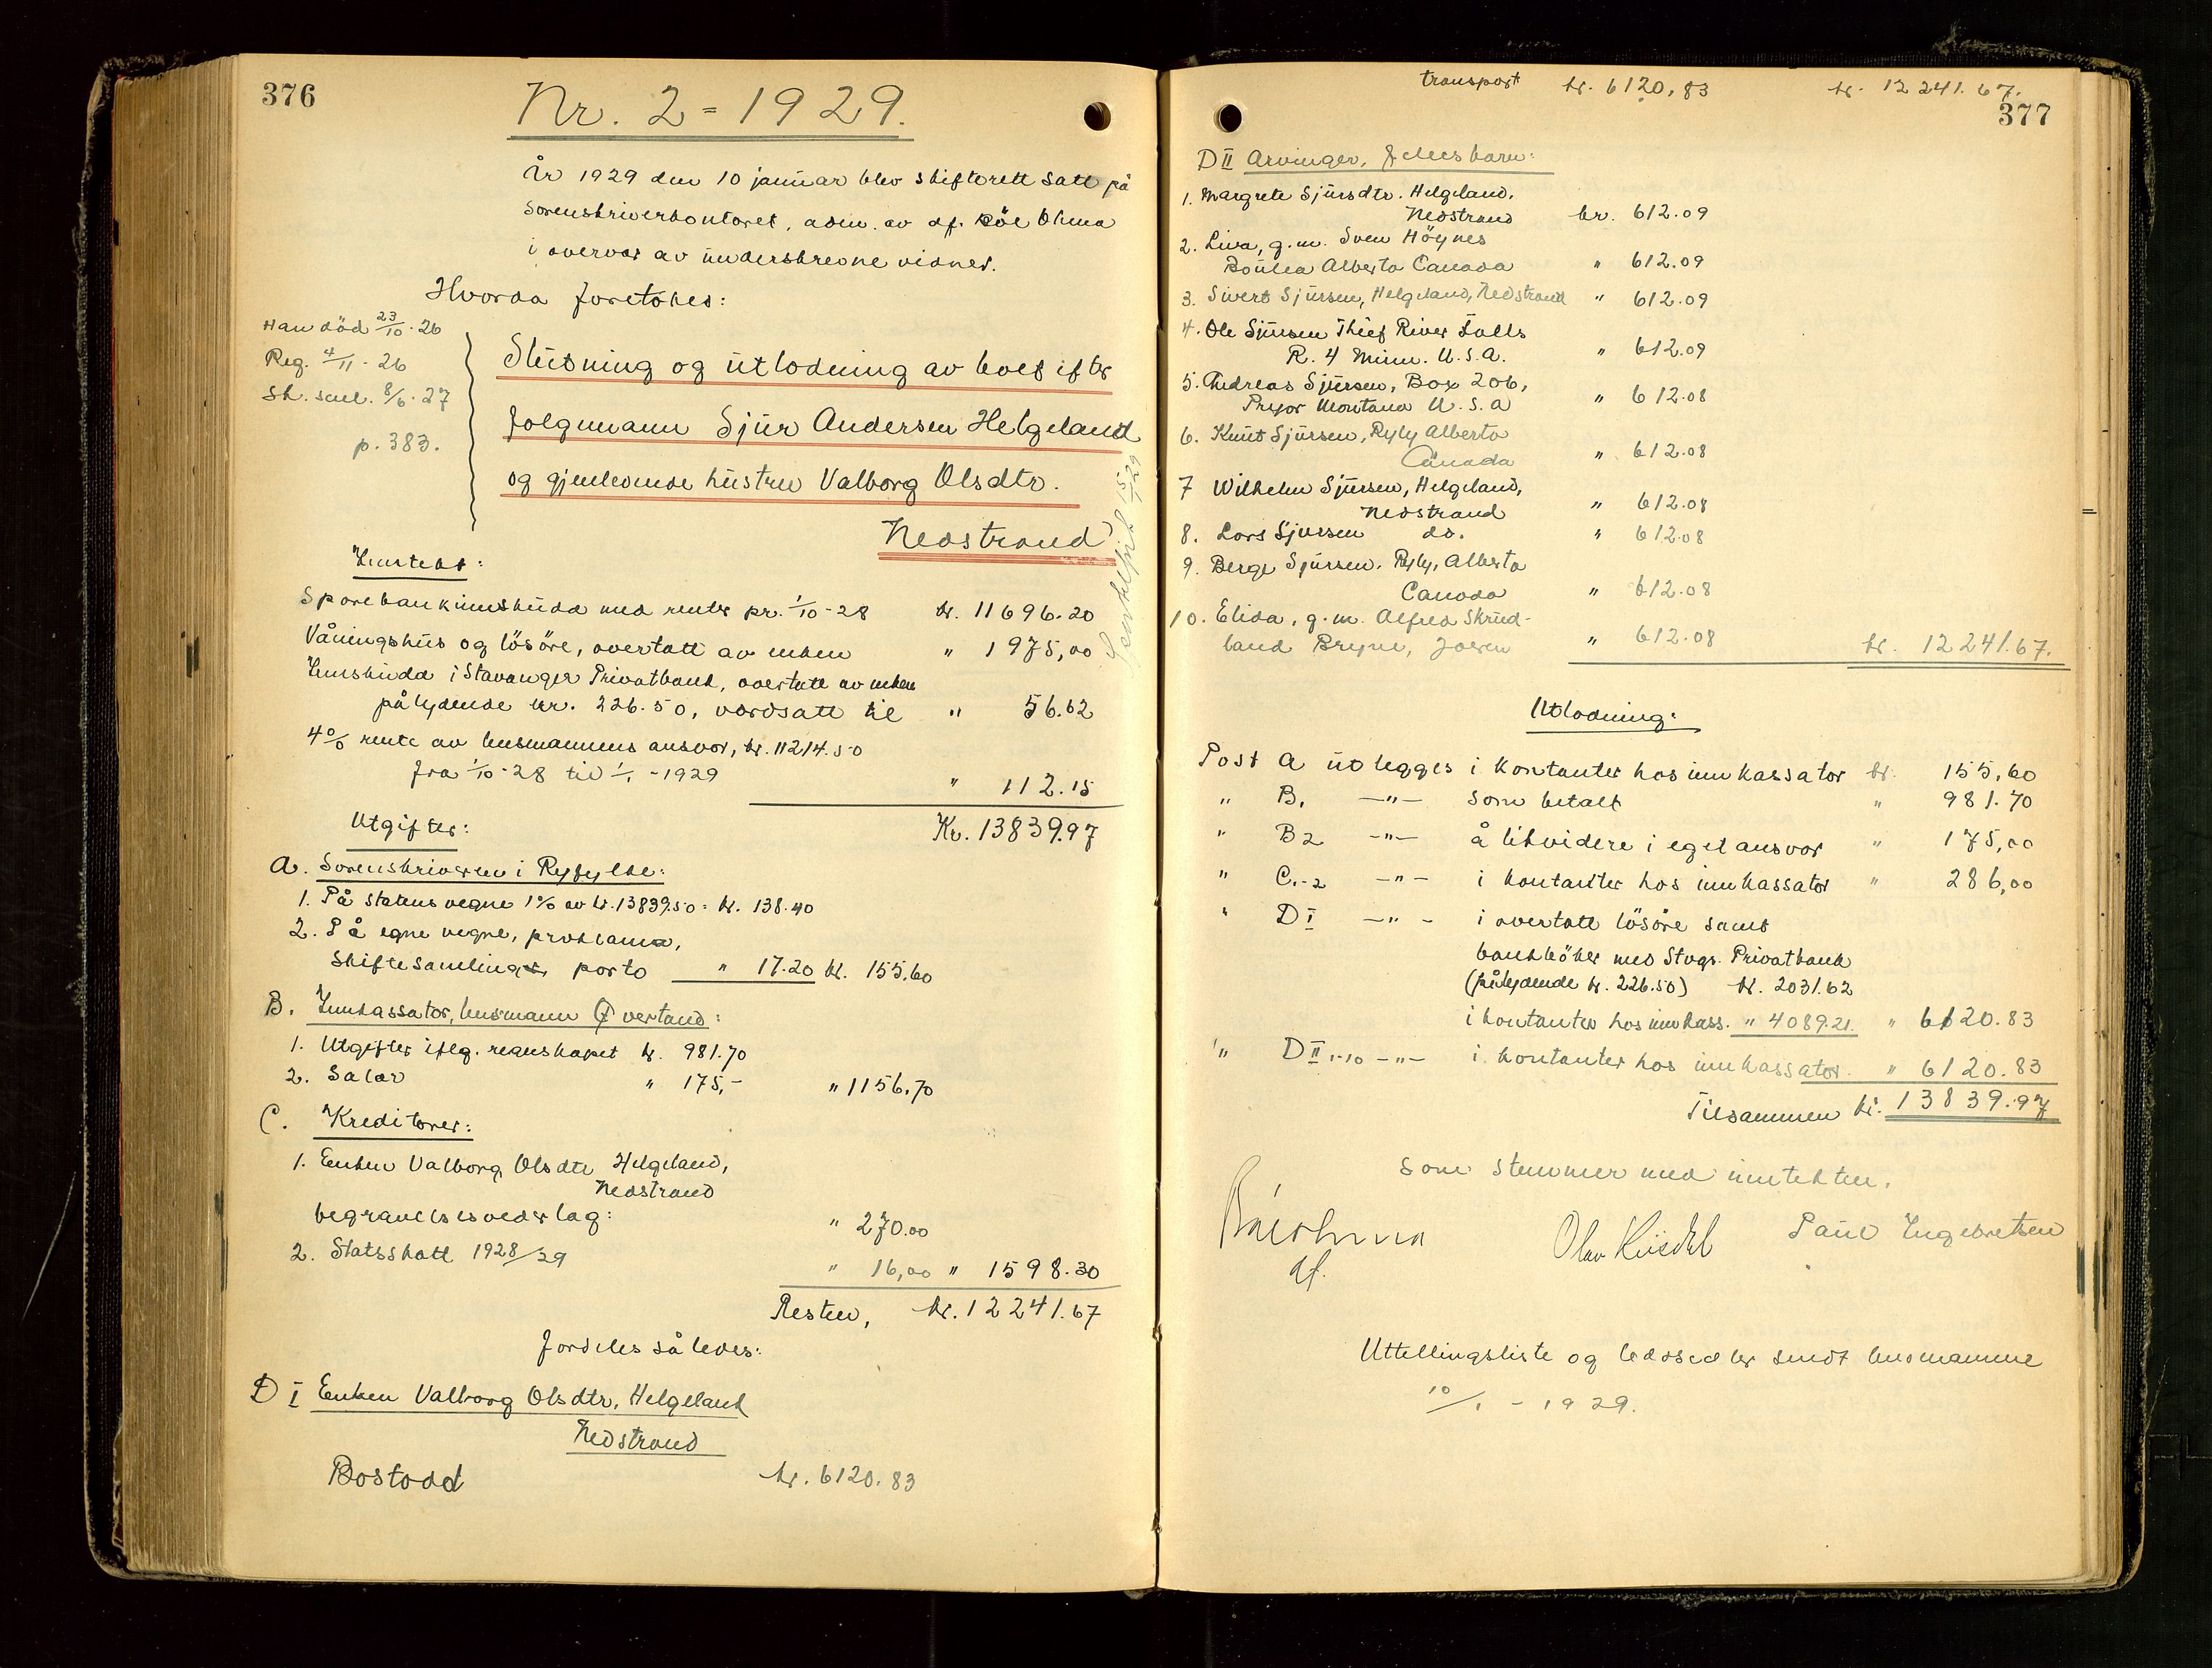 376
Nr. 2 = 1929.
År 1929 den 10 januar blev skifterett satt på
sorenskriverkontoret, adm. av df.
i overvær av underskrevne vidner.
Hvorda foretokes:
Han död 23/10-26
Reg. 4/11-26
Sk. saml. 8/6-27
p. 383.
Slutning og utlodning av boet efter
folgmann Sjur Andersen Helgeland
og gjenlevende hustru Valborg Olsdtr.
Nedstrand
15/1 29
Inntekt:
Sparebankinnskudd med renter pr. 1/10-28 kr. 11696.20
Våningshus og lösöre, overtatt av enken " 1975,00
Innskudd i Stavanger Privatbank, overtatt av enken
pålydende kr. 226.50, verdsatt til " 56.62
4% rente av lensmannens ansvar, kr. 11214.50
fra 1/10-28 til 1/1-1929 " 112.15
Kr. 13839.97
Utgifter:
A. Sorenskriveren i Ryfylke:
1. På statens vegne 1% av kr. 13839.50 = kr. 138.40
2. På egne vegne, proklama,
skiftesamling, porto " 17.20 kr. 155.60
B. Innkassator, lensmann Øvertand:
1. Utgifter iflg. regnskapet kr. 981.70
2. Salær " 175,- " 1156.70
C. Kreditorer:
1. Enken Valborg Olsdtr Helgeland,
Nedstrand
begravelsesvederlag: " 270.00
2. Statsskatt 1928/29 " 16,00 " 1598.30
Resten, kr. 12241.67
fordeles således:
D I Enken Valborg Olsdtr. Helgeland
Nedstrand
Boslodd kr. 6120.83
transport kr. 6120,83 kr. 12241.67.
377
D II Arvinger, fellesbarn:
1. Margrete Sjursdtr. Helgeland,
Nedstrand kr. 612.09
2. Liva, g.m. Sven Höynes
Alberta Canada " 612.09
3. Sivert Sjursen, Helgeland, Nedstrand " 612.09
4. Ole Sjursen Thief River Falls
R. 4 Minn. U.S.A. " 612.09
5. Andreas Sjursen, Box 206,
Pryor Montana U.S.A " 612.08
6. Knut Sjursen, Ryly Alberta
Canada " 612.08
7 Wilhelm Sjursen, Helgeland,
Nedstrand " 612.08
8. Lars Sjursen do. " 612.08
9. Berge Sjursen. Ryly, Alberta
Canada " 612.08
10. Elida, g.m. Alfred Skrud-
land Bryne, Jæren " 612.08 kr. 12241.67.
Utlodning:
Post A utlegges i kontanter hos innkassator kr. 155,60
" B. -"- som betalt " 981.70
" B2 -"- å likvidere i eget ansvar " 175,00
" C.-2 -"- i kontanter hos innkassator " 286,00
" D I -"- i overtatt lösöre samt
bankböker med Stvgr. Privatbank
(pålydende kr. 226.50) kr. 2031.62
i kontanter hos innkass. " 4089.21. " 6120.83
" D II 1-10 -"- i kontanter hos innkassator " 6120.83
Tilsammen kr. 13839.97
som stemmer med inntekten.
df.
Olav Paul Ingebretsen
Uttellingsliste og sendt lensmannen
10/1 - 1929.